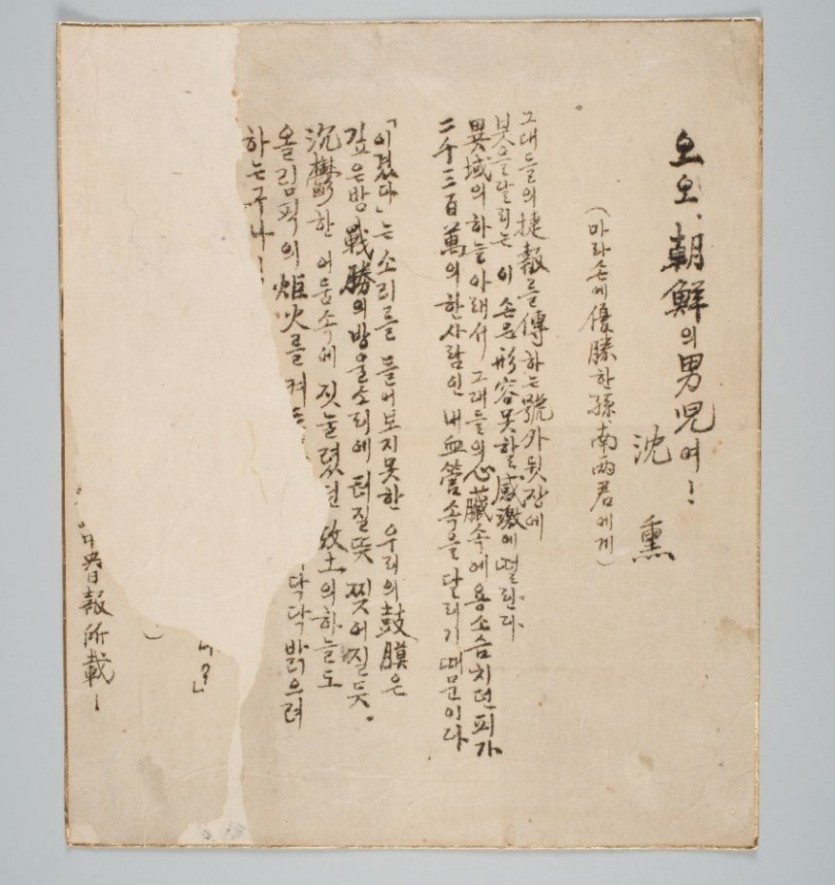 오오, 朝鮮의男児여!
沈 熏
(마라손에優勝한孫、南兩君에게)
그대들의捷報를傳하는號外뒷장에
붓을달리는 이 손은形容못할感激에떨린다.
異域의하늘아래서 그대들의心臟속에용소슴치던피가
二千三百萬의한사람인 내血管속을달리기때문이다
「이겼다」는 소리를 들어보지못한 우리의鼓膜은
깊은밤戰勝의방울소리에 터질뜻 찢어질듯.
沉鬱한 어둠속에 짓눌렸던 故土의하늘도
올림픽의炬火를켜 닥닥밝으려
하는구나!
央日報所載!